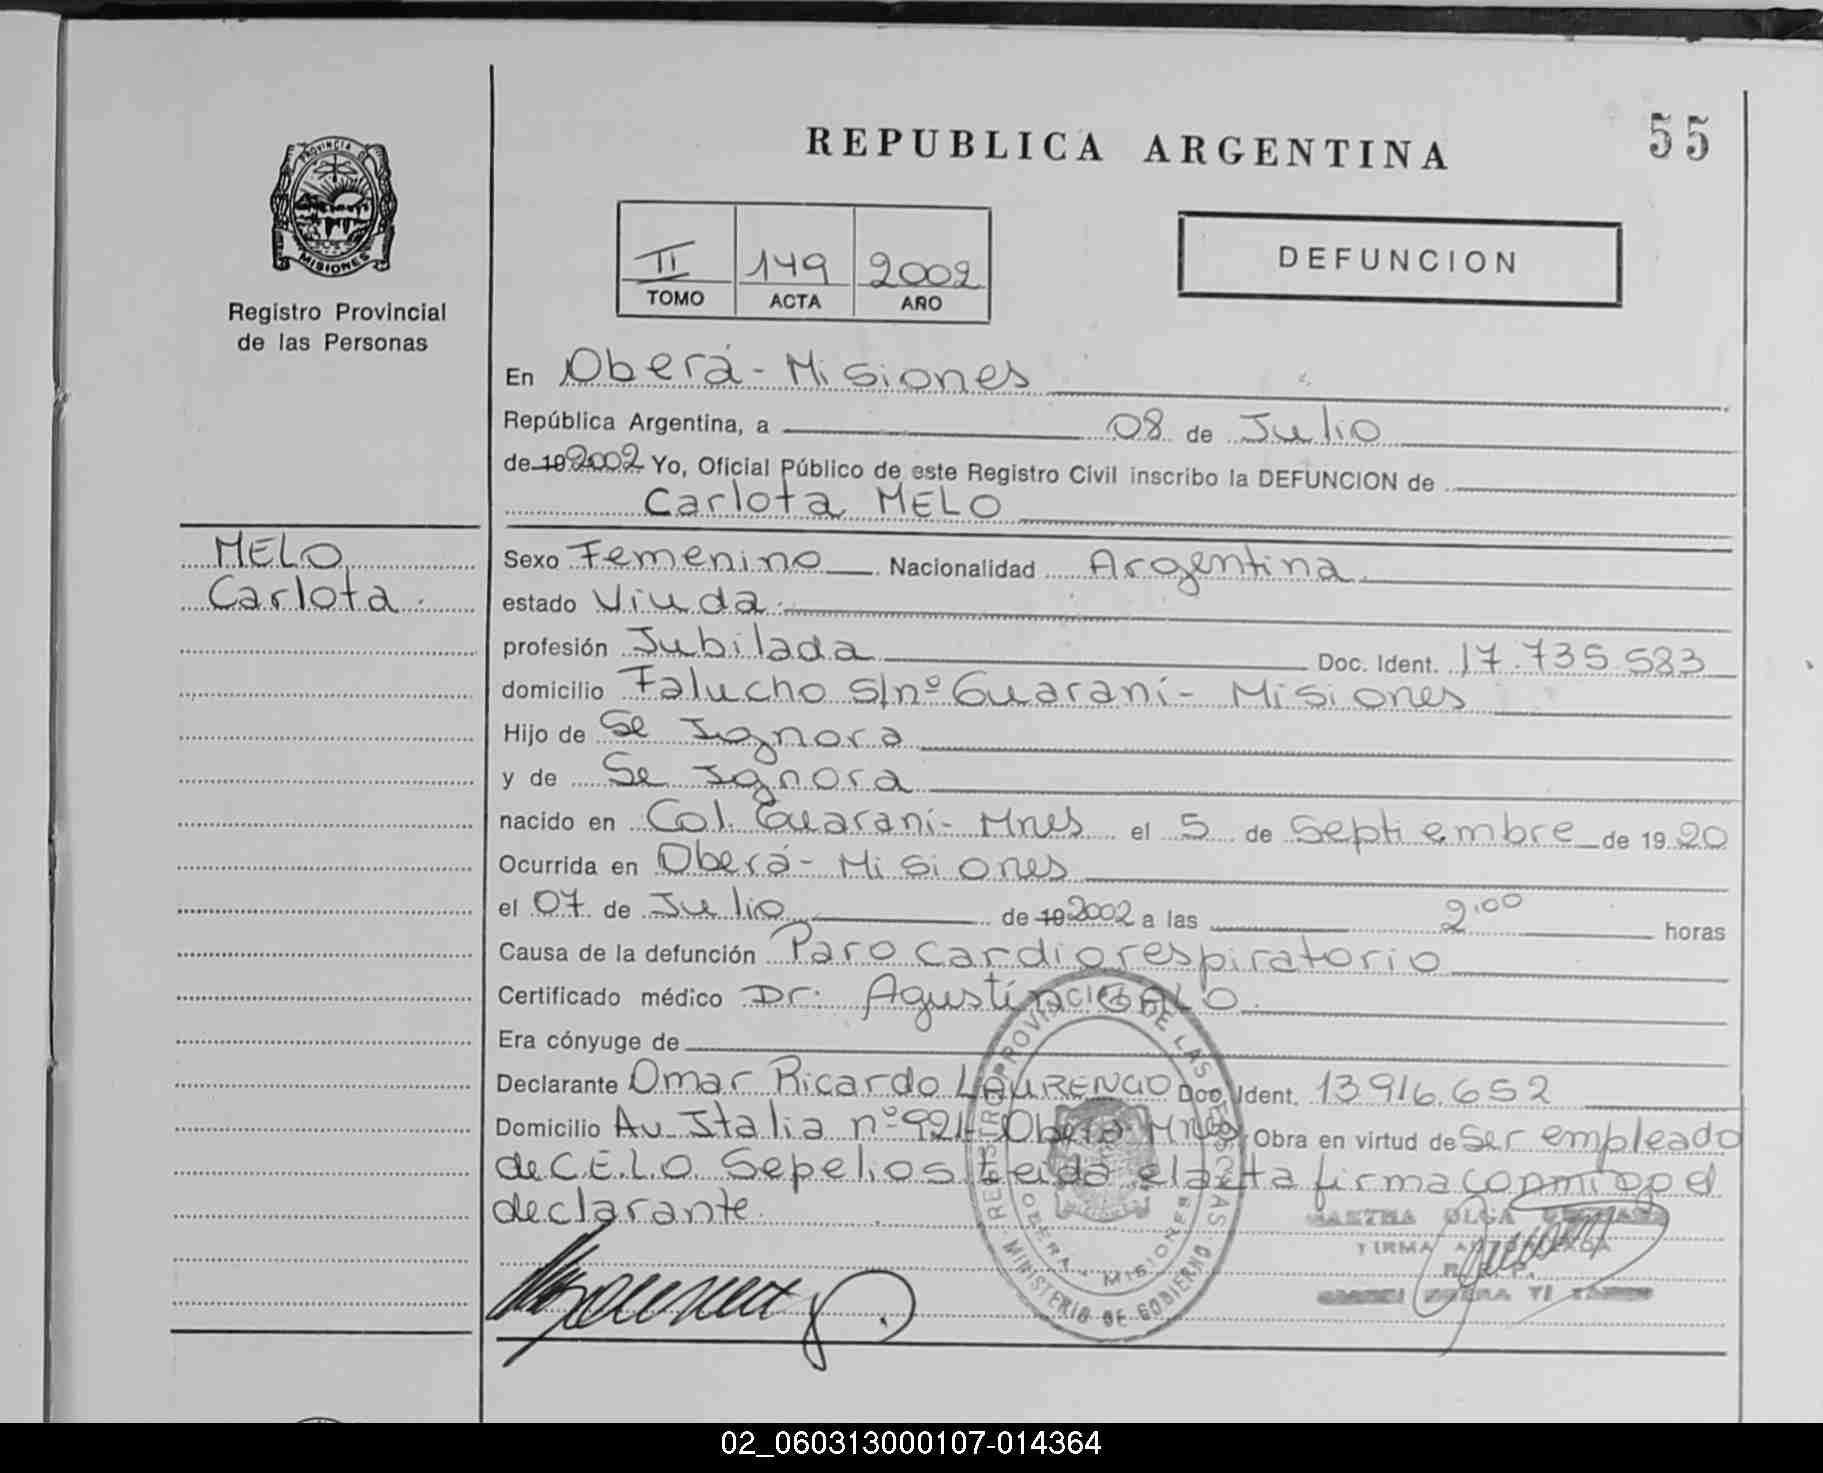 55
REPUBLICA ARGENTINA
PROVINCIA DE
MISIONES
Registro Provincial
de las Personas
II 149 2002
TOMO ACTA AÑO
DEFUNCION
En Oberá - Misiones
República Argentina, a 08 de Julio
de 19 2002 Yo, Oficial Público de este Registro Civil inscribo la DEFUNCION de
Carlota MELO
MELO
Carlota.
Sexo Femenino Nacionalidad Argentina
estado Viuda.
profesión Jubilada Doc. Ident. 17.735.583
domicilio Falucho s/nº Guaraní - Misiones
Hijo de Se Ignora
y de Se Ignora
nacido en Col. Guaraní - Mnes el 5 de Septiembre de 19 20
Ocurrida en Oberá - Misiones
el 07 de Julio de 19 2002 a las 2.00 horas
Causa de la defunción Paro cardiorespiratorio
Certificado médico Dr. Agustín GALO.
Era cónyuge de
Declarante Omar Ricardo LOURENCIO Doc. Ident. 13.916.652
Domicilio Av. Italia nº 921 - Oberá - Mnes Obra en virtud de Ser empleado
de C.E.L.O. Sepelios leida el acta firma conmigo el
declarante.
REGISTRO PROVINCIAL DE LAS PERSONAS
OBERA - MISIONES
MINISTERIO DE GOBIERNO
MARTHA OLGA
FIRMA AUTORIZADA
R. P. P.
02_060313000107-014364